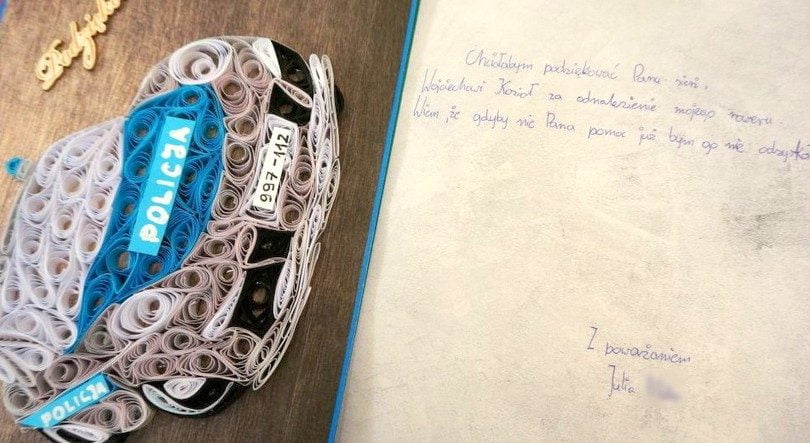 Podzięko
POLICJA
997-112
POLICJA
Chciałabym podziękować Panu sierż.
Wojciechowi Kozioł za odnalezienie mojego roweru.
Wiem, że gdyby nie Pana pomoc już bym go nie odzyska
Z poważaniem
Julia